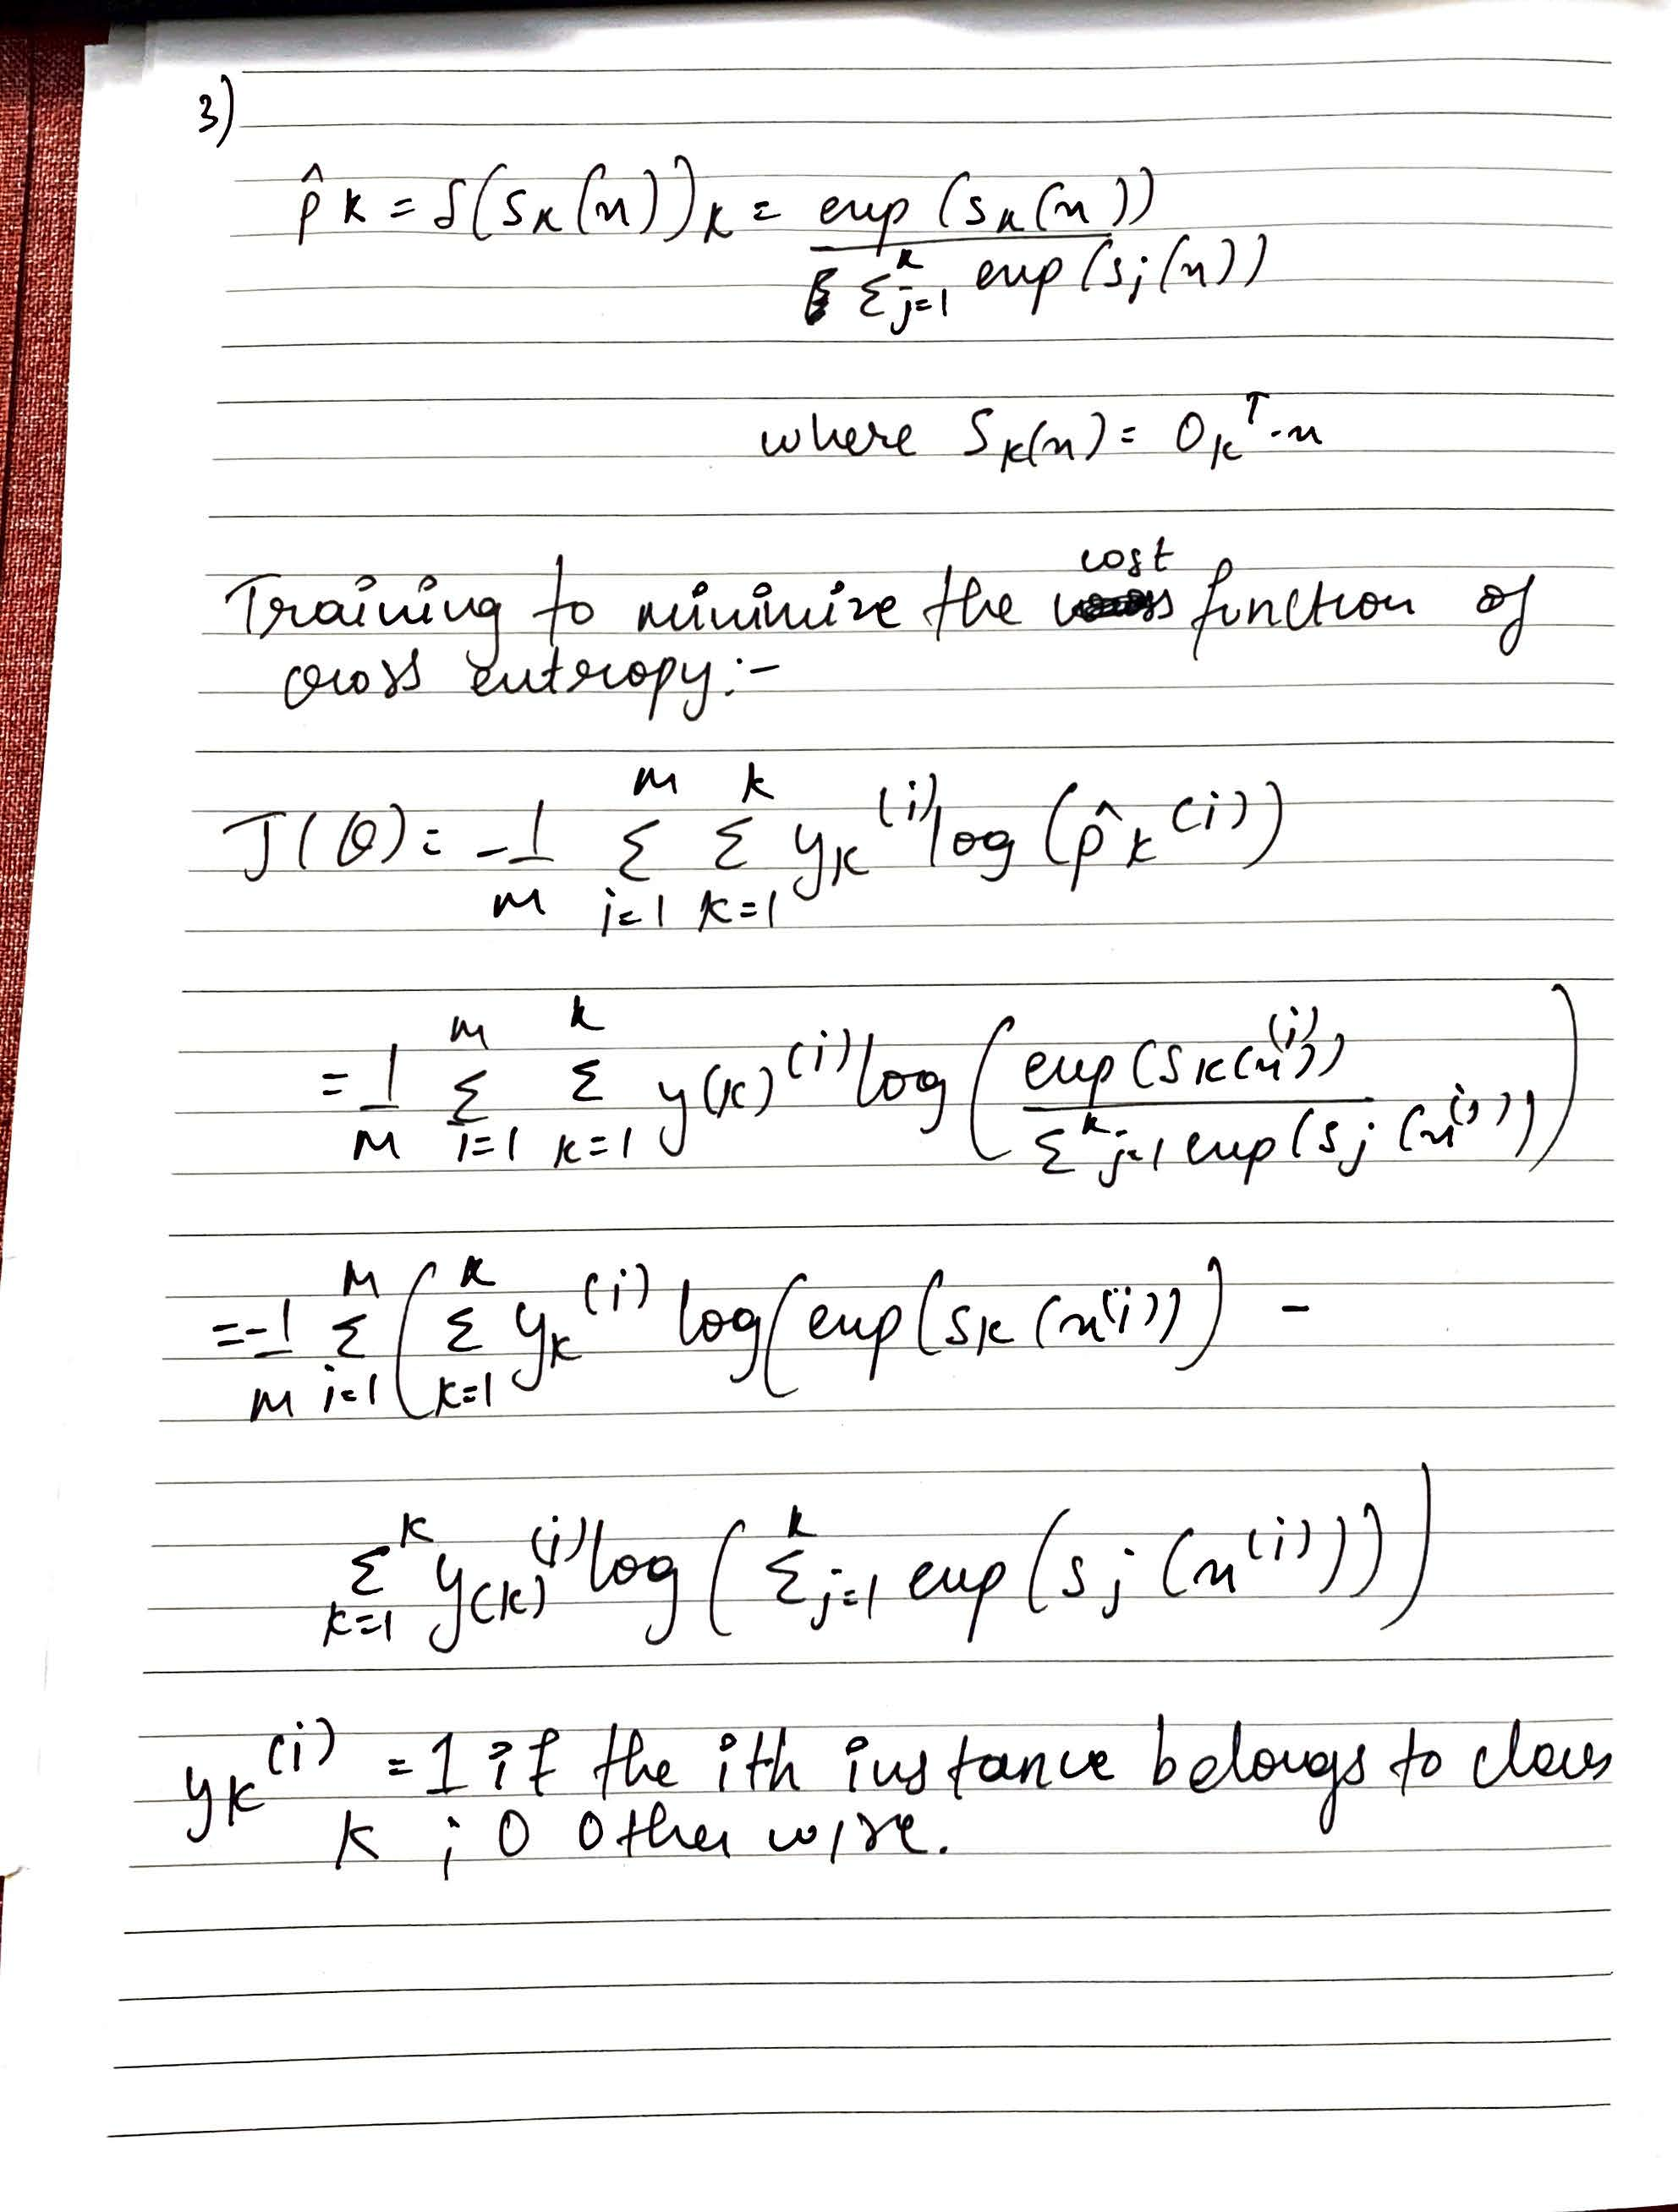 3)
p̂k = δ(sk(x))k = exp (sk(x))
Σ^k j=1 exp (sj(x))
where Sk(x) = θk^T·x
cost
Training to minimize the function of
cross entropy:-
J(θ) = -1/m Σ^m i=1 Σ^k k=1 yk^(i) log (p̂k^(i))
= 1/m Σ^m i=1 Σ^k k=1 y(k)^(i) log ( exp (sk(x^(i))) / Σ^k j=1 exp (sj (x^(i))) )
= -1/m Σ^m i=1 ( Σ^k k=1 yk^(i) log( exp (sk (x^(i))) -
Σ^k k=1 y(k)^(i) log ( Σ^k j=1 exp (sj (x^(i))) ) )
yk^(i) = 1 if the ith instance belongs to class
k ; 0 otherwise.